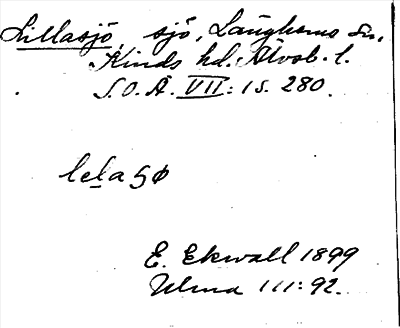 Lillasjö, sjö, Långhems sn,
Kinds hd. Älvsb. l.
S.O.Ä. VII: 1 s. 280.
lela 5ø
E. Ekwall 1899
Ulma 111:92.